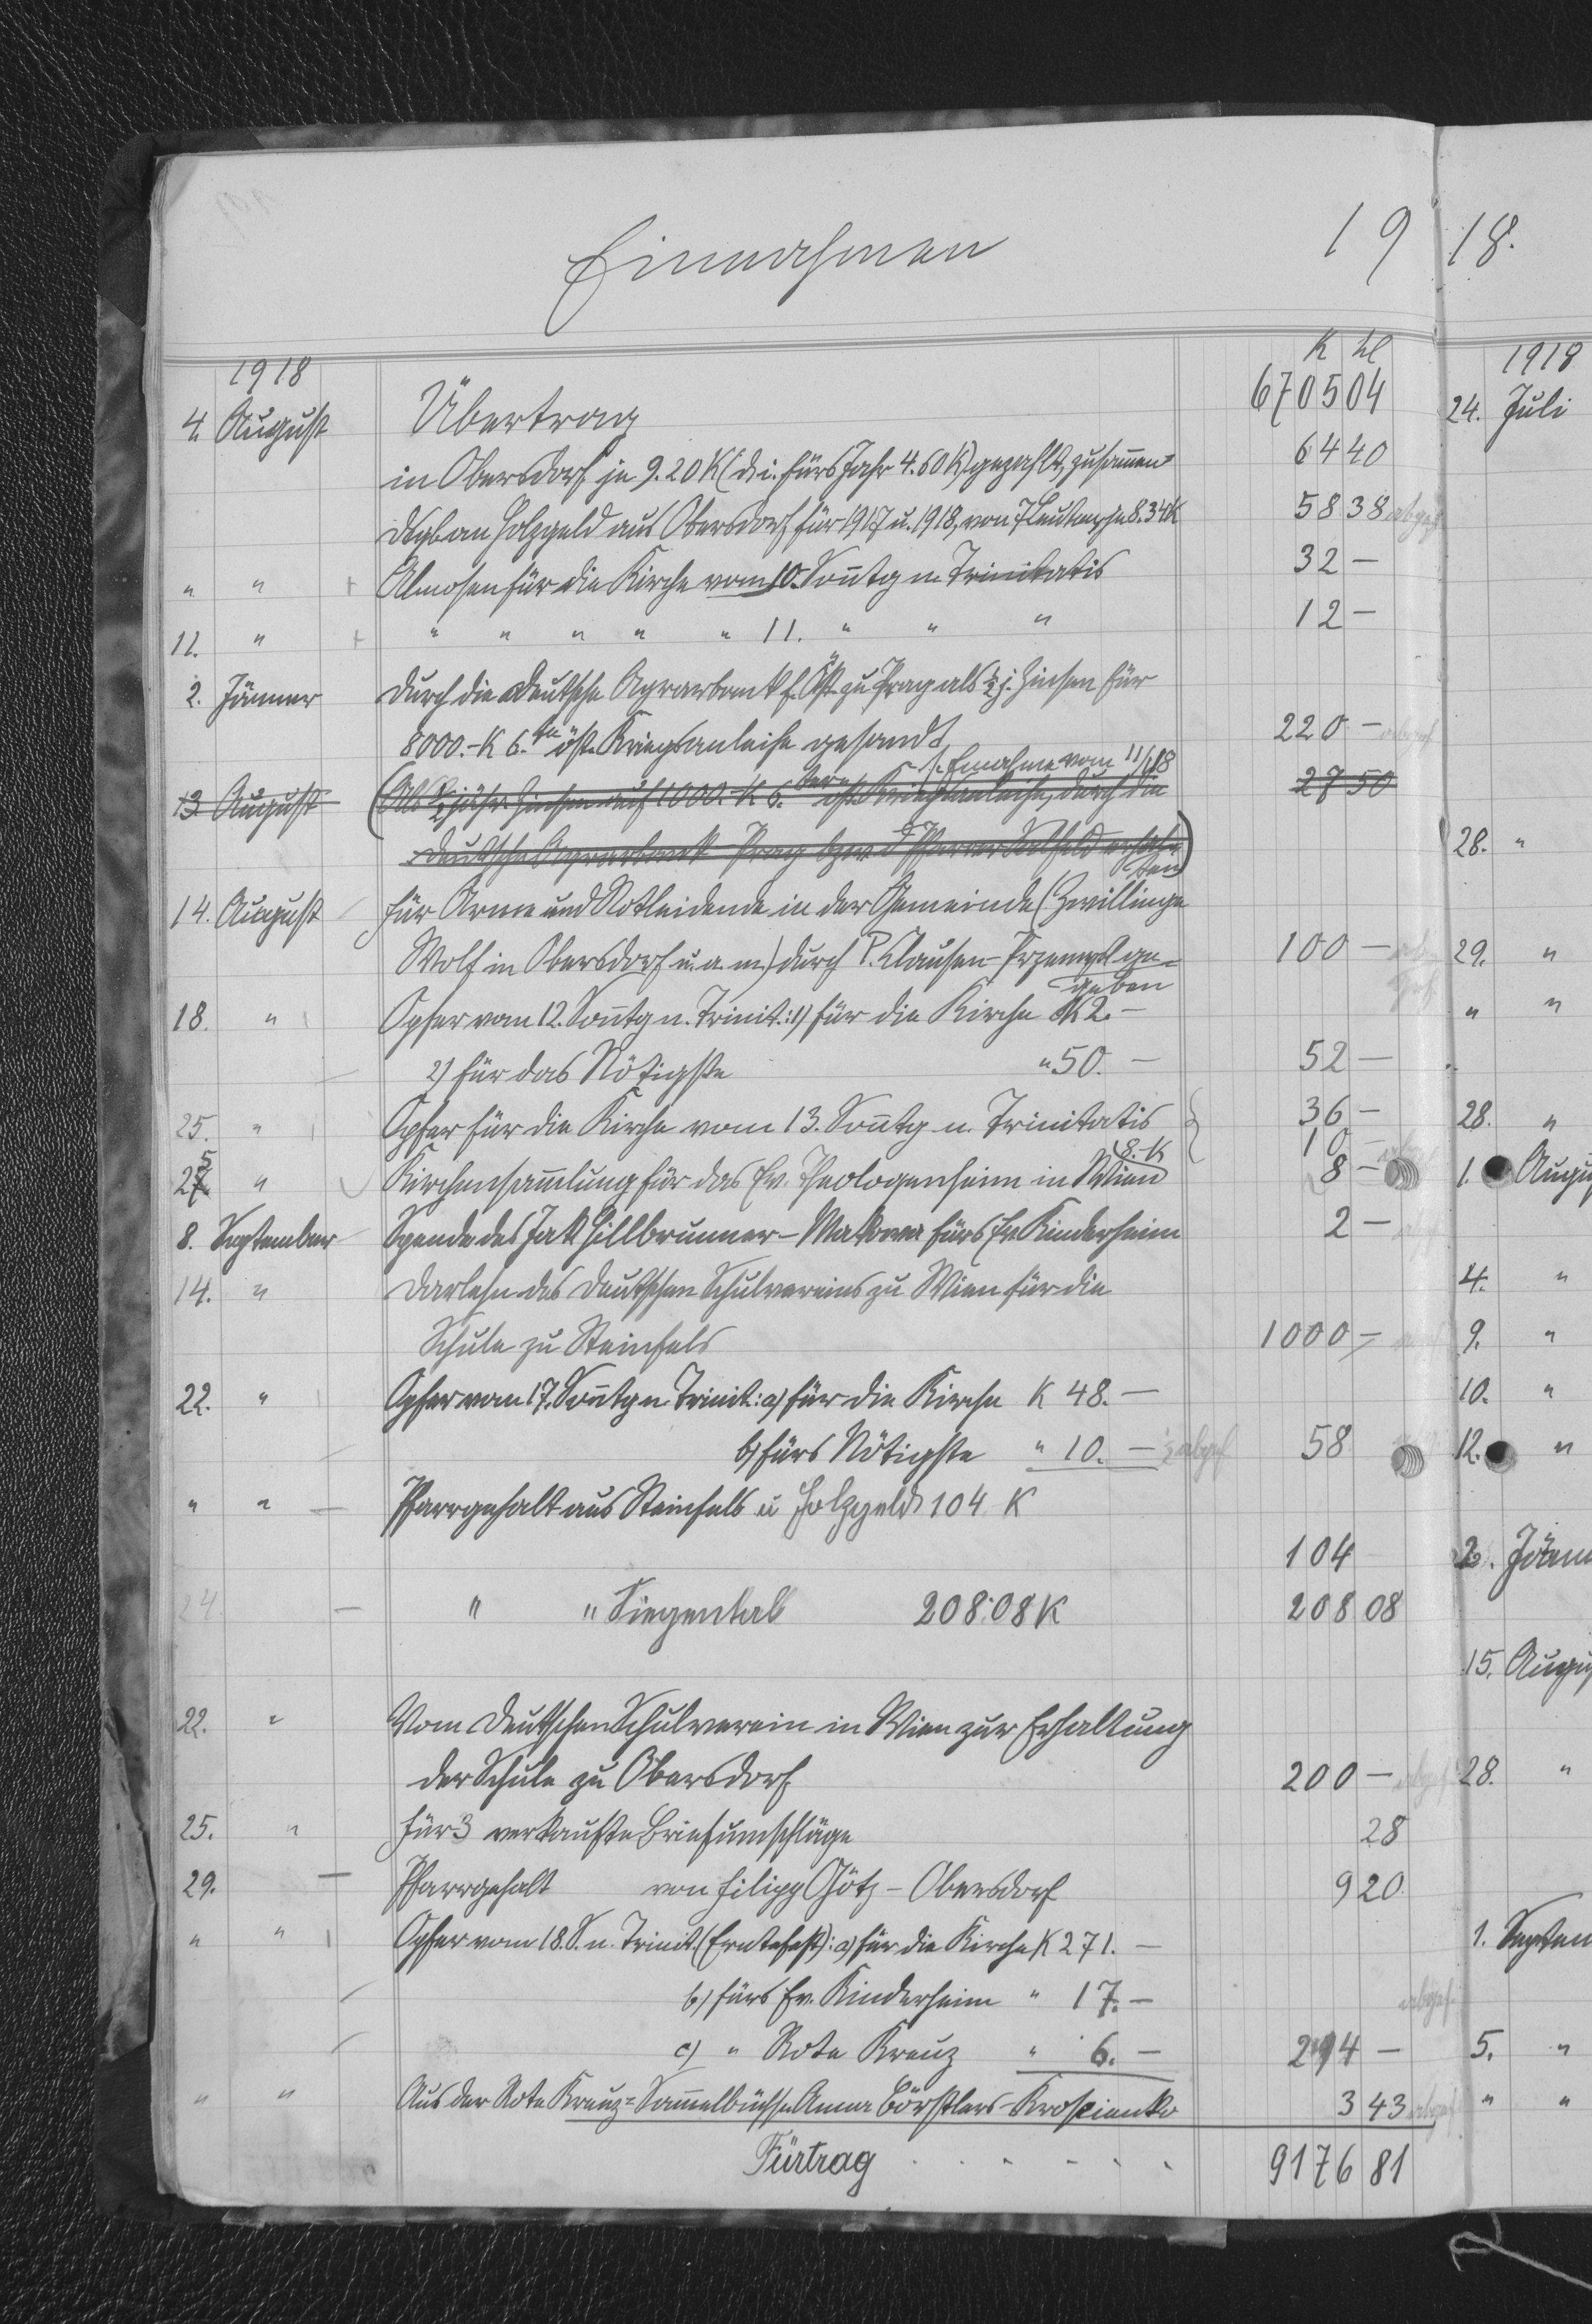 Einnahmen 19 18.
1918 K hl 1918
4. August Übertrag 6705 04 24. Juli
in Obersdorf je 9.20 K (d.i. fürs Jahr 4.60 K) gezahlt, zusammen 64 40
desgl. an Holzgeld aus Obersdorf für 1917 u. 1918, von 7 Leuten je 8.34 K 58 38
" " + Almosen für die Kirche vom 10. Sonntg n. Trinitatis 32 –
11. " + " " " " " 11. " " " 12 –
2. Jänner durch die Deutsche Agrarbank f. Öst. zu Prag als ½ j. Zinsen für
8000.– K 6.ten öst. Kriegsanleihe gesandt 220 –
s. Einnahme vom 11/1 18
13 August (Als ½ jähr. Zinsen auf 1000.– K 6. öst. Kriegsanleihe, durch die 27 50
Deutsche Agrarbank Prag bzw. Pfarrer erhalten) 28. "
14. August für Arme und Notleidende in der Gemeinde (Zwillinge
Wolf in Obersdorf u. a. m.) durch P. Clausen – ge= 100 – 29. "
geben
18. " Opfer vom 12. Sonntg n. Trinit.: 1) für die Kirche K 2.– " "
2) für das Nötigste " 50.– 52 –
25. " Opfer für die Kirche vom 13. Sonntg n. Trinitatis 36 – 28. "
10 –
25 " Kirchensammlung für das Ev. Theologenheim in Wien 8.–K 8 – 1. Augu
8. September Spende des Jak Hillbrunner – Makowa fürs Ev. Kinderheim 2 –
14. " Darlehn des Deutschen Schulvereins zu Wien für die 4. "
Schule zu Steinfels 1000 – 9. "
22. " Opfer vom 17. Sonntg n. Trinit: a) für die Kirche K 48.– 10. "
b) fürs Nötigste " 10.– 58 12. "
" " – Pfarrgehalt aus Steinfels u Holzgeld 104 K
104 2. Jänn
24. – " " Siegental 208.08 K 208 08
15. Augu
22. " Vom Deutschen Schulverein in Wien zur Erhaltung
der Schule zu Obersdorf 200 – 28. "
25. " für 3 verkaufte Briefumschläge 28
29. – Pfarrgehalt von Filipp Götz – Obersdorf 9 20
" " Opfer vom 18. S. n. Trinit. (Erntefest): a) für die Kirche K 271.– 1. Septem
b) fürs Ev. Kinderheim " 17.–
c) " Rote Kreuz " 6.– 294 – 5. "
" " Aus der Rote Kreuz=Sammelbüchse Anna Börstlers – Krościenko 3 43 " "
Fürtrag . . . . . . 9176 81